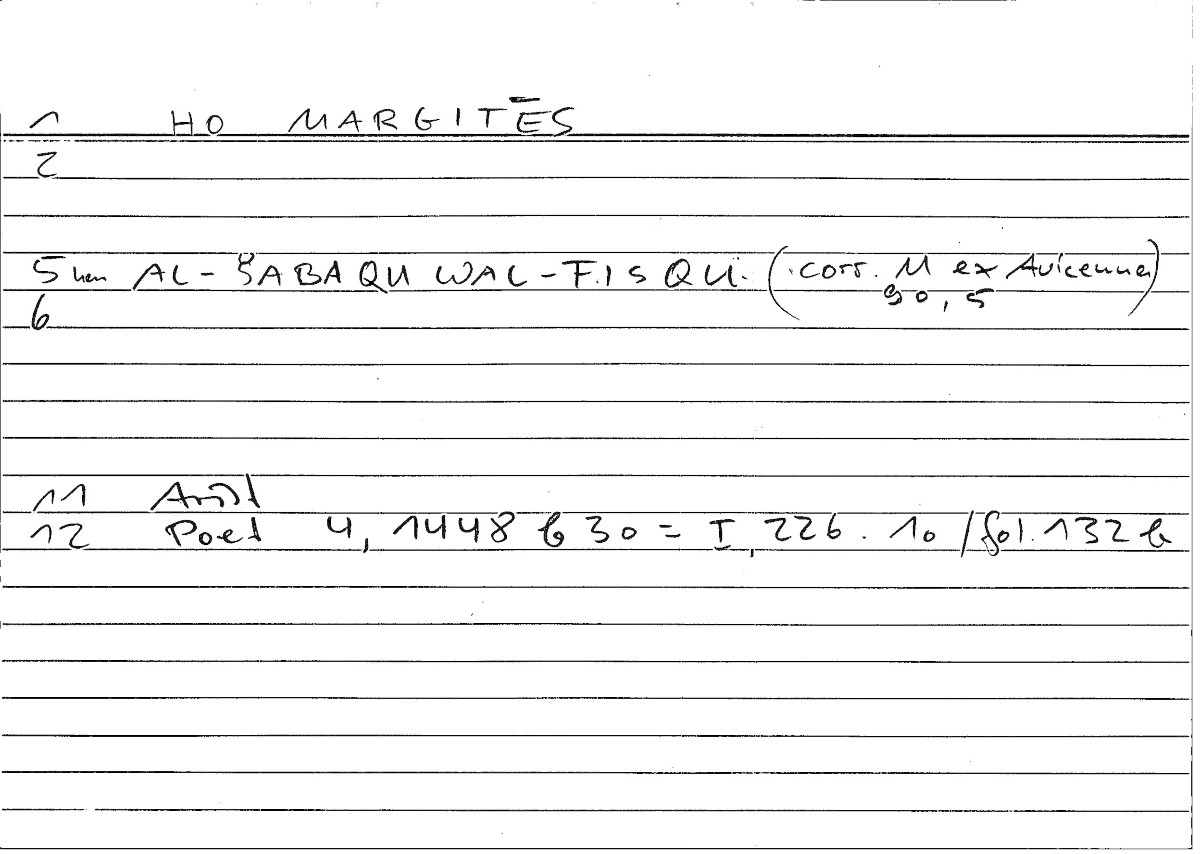 1 HO MARGITĒS
2
5 hem AL-ŠABAQU WAL-FISQU. (corr. M ex Avicenna
90,5)
6
11 Arist
12 Poet 4, 1448 b 30 = I, 226. 10 / fol. 132 b